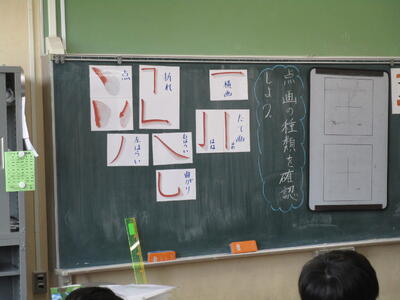 点画の種類を確認
しよう
点
折れ
横画
たて画
はね
左はらい
右はらい
曲がり